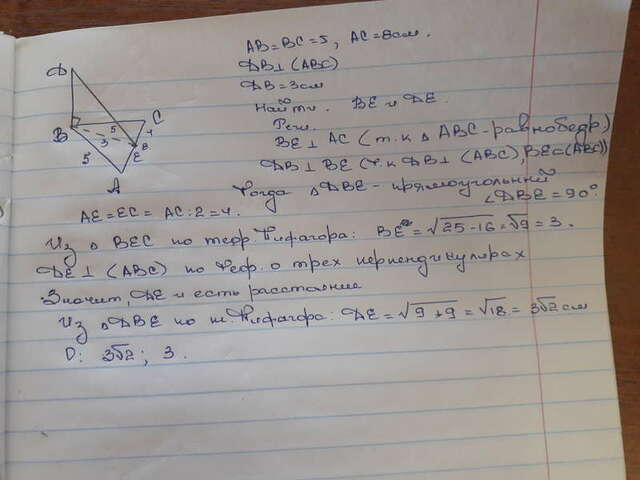 AB = BC = 5, AC = 8 см.
DB ⊥ (ABC)
DB = 3 см
Найти: BE и DE.
Реш.
BE ⊥ AC (т.к Δ ABC - равнобедр)
DB ⊥ BE (т.к DB ⊥ (ABC), BE⊂(ABC))
Тогда Δ DBE - прямоугольный
∠DBE = 90°
AE = EC = AC : 2 = 4.
Из Δ BEC по теор. Пифагора: BE = √25-16 = √9 = 3.
DE ⊥ (ABC) по теор. о трех перпендикулярах
Значит, DE и есть расстояние
Из Δ DBE по т. Пифагора: DE = √9+9 = √18 = 3√2 см
О: 3√2 ; 3.
D
B
C
5
4
3
E
5
A